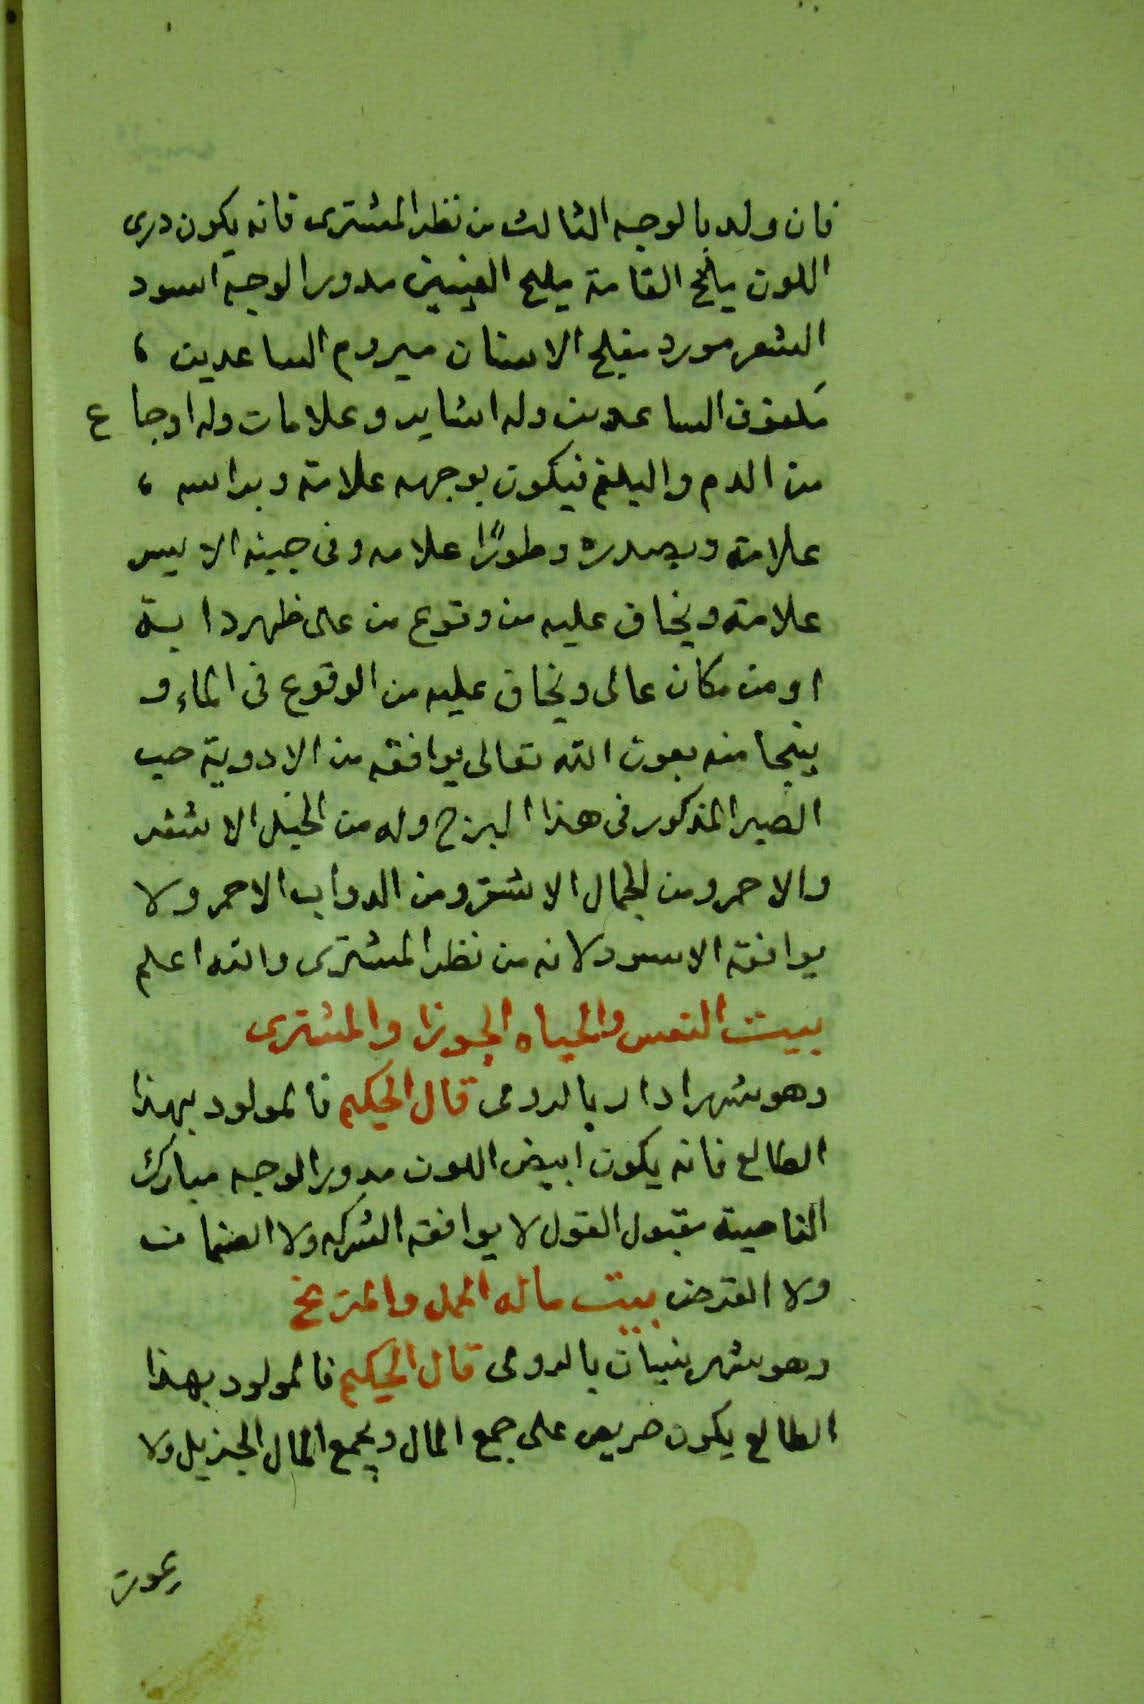 فان ولد بالوجه الثالث من نظر المشترى فانه يكون درى
اللون مليح القامة مليح العينين مدور الوجه اسود
الشعر مورد مفلج الاسنان مبروم الساعدين ،
مكفوف الساعدين وله اشاير وعلامات وله اوجاع
من الدم والبلغم فيكون بوجهه علامة وبراسه ،
علامة وبصدره وطورًا علامه وفى جبينه الايسر
علامة ويخاف عليه من وقوع من على ظهر دابة
او من مكان عالى ويخاف عليه من الوقوع فى الماء و
ينجا منه بعون الله تعالى يوافقه من الادوية حب
الصبر المذكور فى هذا البرج وله من الخيل الاشقر
والاحمر ومن الجمال الاشقر ومن الدواب الاحمر ولا
يوافقه الاسود لانه من نظر المشترى والله اعلم
بيت النفس والحياه الجوزا والمشترى
وهو شهر ادار بالرومى قال الحكيم فالمولود بهذا
الطالع فانه يكون ابيض اللون مدور الوجه مبارك
الناصية مقبول القول لا يوافقه الشركه ولا الضمانات
ولا القرض بيت ماله الحمل والمريخ
وهو شهر نيسان بالرومى قال الحكيم فالمولود بهذا
الطالع يكون حريص على جمع المال ويجمع المال الجزيل ولا
يموت